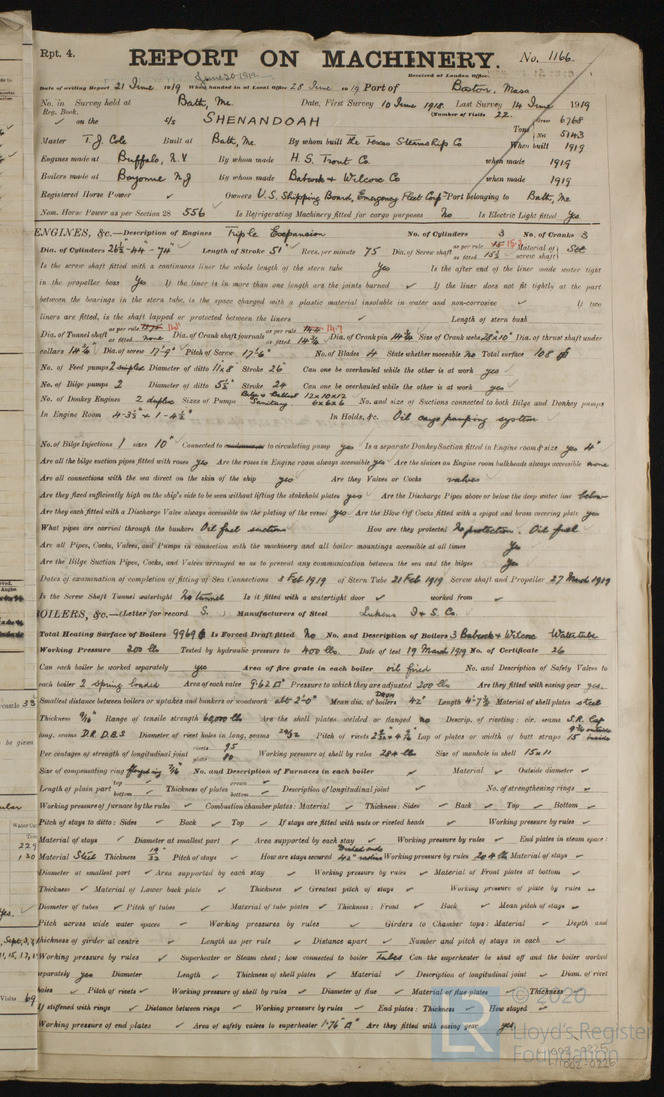 Rpt. 4.
REPORT ON MACHINERY. No. 1166.
June 30 1919
Received at London Office
Date of writing Report 21 June 1919 When handed in at Local Office 28 June 1919 Port of Boston, Mass
No. in Survey held at Bath, Me. Date, First Survey 10 June 1918. Last Survey 14 June 1919
Reg. Book. (Number of Visits 22.
✓ on the s/s SHENANDOAH Tons Gross 6768 Net 5143
Master T. J. Cole Built at Bath, Me. By whom built The Texas Steamship Co When built 1919
Engines made at Buffalo, N.Y By whom made H. G. Trout Co. when made 1919
Boilers made at Bayonne N.J By whom made Babcock & Wilcox Co when made 1919
Registered Horse Power ✓ Owners U.S. Shipping Board, Emergency Fleet Corp Port belonging to Bath, Me.
Nom. Horse Power as per Section 28 556 Is Refrigerating Machinery fitted for cargo purposes No Is Electric Light fitted Yes
ENGINES, &c.—Description of Engines Triple Expansion No. of Cylinders 3 No. of Cranks 3
Dia. of Cylinders 26½-44-74" Length of Stroke 51" Revs. per minute 75 Dia. of Screw shaft as per rule as fitted 15½ Material of screw shaft
Is the screw shaft fitted with a continuous liner the whole length of the stern tube Yes Is the after end of the liner made water tight
in the propeller boss Yes If the liner is in more than one length are the joints burned ✓ If the liner does not fit tightly at the part
between the bearings in the stern tube, is the space charged with a plastic material insoluble in water and non-corrosive ✓ If two
liners are fitted, is the shaft lapped or protected between the liners ✓ Length of stern bush
Dia. of Tunnel shaft as per rule as fitted none Dia. of Crank shaft journals as per rule as fitted 14¾ Dia. of Crank pin 14¾ Size of Crank webs 28x10" Dia. of thrust shaft under
collars 14¾" Dia. of screw 17'-9" Pitch of Screw 17'-6" No. of Blades 4 State whether moveable No Total surface 108
No. of Feed pumps 2 duplex Diameter of ditto 11x8 Stroke 26" Can one be overhauled while the other is at work yes ✓
No. of Bilge pumps 2 Diameter of ditto 5½ Stroke 24 Can one be overhauled while the other is at work yes ✓
No. of Donkey Engines 2 duplex Sizes of Pumps Bilge & Ballast 12x10x12 Sanitary 6x6x6 No. and size of Suctions connected to both Bilge and Donkey pumps
In Engine Room 4-3½" & 1-4½" In Holds, &c. Oil cargo pumping system
No. of Bilge Injections 1 sizes 10" Connected to circulating pump yes Is a separate Donkey Suction fitted in Engine room & size yes 4"
Are all the bilge suction pipes fitted with roses yes Are the roses in Engine room always accessible yes Are the sluices on Engine room bulkheads always accessible none
Are all connections with the sea direct on the skin of the ship yes Are they Valves or Cocks valves
Are they fixed sufficiently high on the ship's side to be seen without lifting the stokehold plates yes Are the Discharge Pipes above or below the deep water line below
Are they each fitted with a Discharge Valve always accessible on the plating of the vessel yes Are the Blow Off Cocks fitted with a spigot and brass covering plate yes
What pipes are carried through the bunkers Oil fuel suctions How are they protected No protection. Oil fuel
Are all Pipes, Cocks, Valves, and Pumps in connection with the machinery and all boiler mountings accessible at all times Yes
Are the Bilge Suction Pipes, Cocks, and Valves arranged so as to prevent any communication between the sea and the bilges Yes
Dates of examination of completion of fitting of Sea Connections 3 Feb 1919 of Stern Tube 21 Feb 1919 Screw shaft and Propeller 27 March 1919
Is the Screw Shaft Tunnel watertight No tunnel Is it fitted with a watertight door ✓ worked from ✓
BOILERS, &c.—(Letter for record S.) Manufacturers of Steel Lukens I & S. Co.
Total Heating Surface of Boilers 9969 Is Forced Draft fitted No No. and Description of Boilers 3 Babcock & Wilcox Watertube
Working Pressure 200 lbs Tested by hydraulic pressure to 400 lbs. Date of test 19 March 1919 No. of Certificate 26
Can each boiler be worked separately yes Area of fire grate in each boiler oil fired No. and Description of Safety Valves to
each boiler 2 spring loaded Area of each valve 9.62 Pressure to which they are adjusted 200 lbs Are they fitted with easing gear yes.
Smallest distance between boilers or uptakes and bunkers or woodwork abt 2'-0" Mean dia. of boilers Drum 42" Length 4'-7½ Material of shell plates steel
Thickness 9/16" Range of tensile strength 60,000 lbs Are the shell plates welded or flanged no Descrip. of riveting: cir. seams S.R. Lap
long. seams D.R. D.B.S Diameter of rivet holes in long. seams 29/32 Pitch of rivets Lap of plates or width of butt straps 9¾ outside 15 inside
Per centages of strength of longitudinal joint rivets 95 plate 80 Working pressure of shell by rules 284 lbs Size of manhole in shell 15x11
Size of compensating ring 7/16" No. and Description of Furnaces in each boiler ✓ Material ✓ Outside diameter ✓
Length of plain part top bottom ✓ Thickness of plates crown bottom ✓ Description of longitudinal joint ✓ No. of strengthening rings ✓
Working pressure of furnace by the rules ✓ Combustion chamber plates: Material ✓ Thickness: Sides ✓ Back ✓ Top ✓ Bottom ✓
Pitch of stays to ditto: Sides ✓ Back ✓ Top ✓ If stays are fitted with nuts or riveted heads ✓ Working pressure by rules ✓
Material of stays ✓ Diameter at smallest part ✓ Area supported by each stay ✓ Working pressure by rules ✓ End plates in steam space:
Material Steel Thickness 19/32 Pitch of stays ✓ How are stays secured Dished ends 42" radius Working pressure by rules 204 lb Material of stays ✓
Diameter at smallest part ✓ Area supported by each stay ✓ Working pressure by rules ✓ Material of Front plates at bottom ✓
Thickness ✓ Material of Lower back plate ✓ Thickness ✓ Greatest pitch of stays ✓ Working pressure of plate by rules ✓
Diameter of tubes ✓ Pitch of tubes ✓ Material of tube plates ✓ Thickness: Front ✓ Back ✓ Mean pitch of stays ✓
Pitch across wide water spaces ✓ Working pressures by rules ✓ Girders to Chamber tops: Material ✓ Depth and
thickness of girder at centre ✓ Length as per rule ✓ Distance apart ✓ Number and pitch of stays in each ✓
Working pressure by rules ✓ Superheater or Steam chest; how connected to boiler Tubes Can the superheater be shut off and the boiler worked
separately yes Diameter Length ✓ Thickness of shell plates ✓ Material ✓ Description of longitudinal joint ✓ Diam. of rivet
holes ✓ Pitch of rivets ✓ Working pressure of shell by rules ✓ Diameter of flue ✓ Material of flue plates ✓ Thickness ✓
If stiffened with rings ✓ Distance between rings ✓ Working pressure by rules ✓ End plates: Thickness ✓ How stayed ✓
Working pressure of end plates ✓ Area of safety valves to superheater 1.76 Are they fitted with easing gear yes.
LR © 2020
Lloyd's Register
Foundation
1002-0225
1002-0226